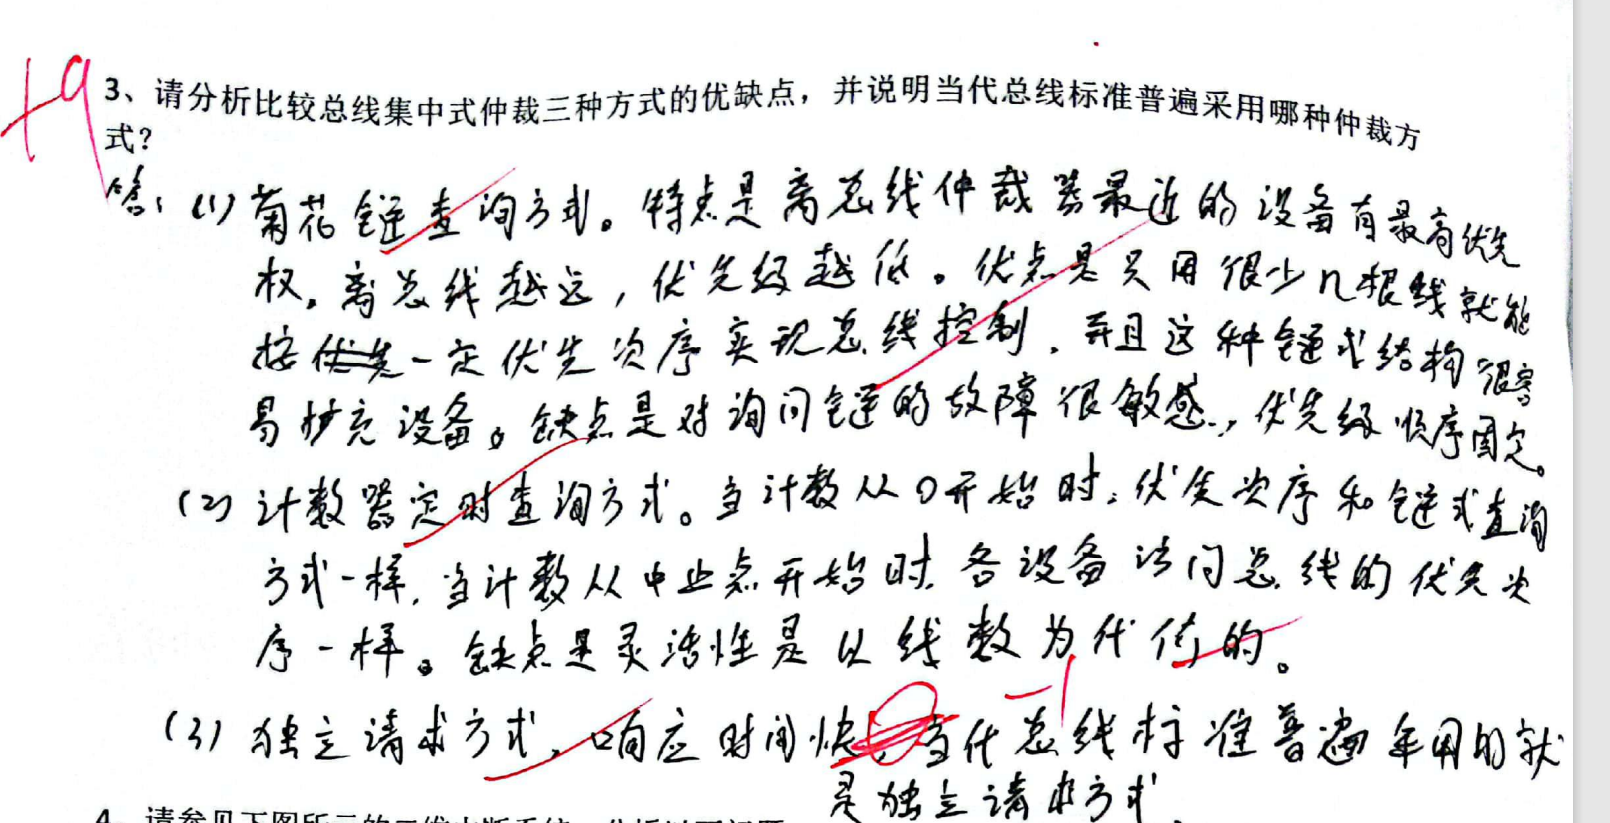 +9
3、请分析比较总线集中式仲裁三种方式的优缺点，并说明当代总线标准普遍采用哪种仲裁方
式？
答：(1) 菊花链查询方式。特点是离总线仲裁器最近的设备有最高优先
权，离总线越远，优先级越低。优点是只用很少几根线就能
按优先一定优先次序实现总线控制，并且这种链式结构很容
易扩充设备。缺点是对询问链的故障很敏感，优先级顺序固定。
(2) 计数器定时查询方式。当计数从0开始时，优先次序和链式查询
方式一样，当计数从中止点开始时，各设备访问总线的优先次
序一样。缺点是灵活性是以线数为代价的。
-1
(3) 独立请求方式，响应时间快，当代总线标准普遍采用的就
是独立请求方式。
4、请参见下图所示的二维中断系统